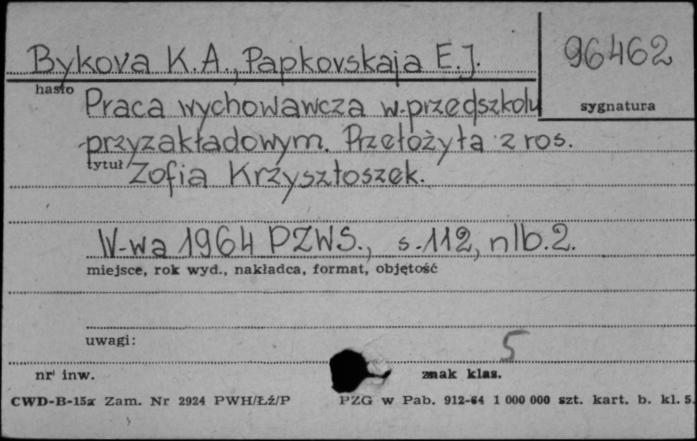 Bykova K.A., Papkovskaja E.J.
96462
hasło
sygnatura
Praca wychowawcza w przedszkolu
przyzakładowym. Przełożyła z ros.
tytuł Zofia Krzysztoszek.
W-wa 1964 PZWS., s.112, nlb.2.
miejsce, rok wyd., nakładca, format, objętość
uwagi:
5
nr inw.
znak klas.
CWD-B-15a Zam. Nr 2924 PWH/Łź/P PZG w Pab. 912-64 1 000 000 szt. kart. b. kl. 5.